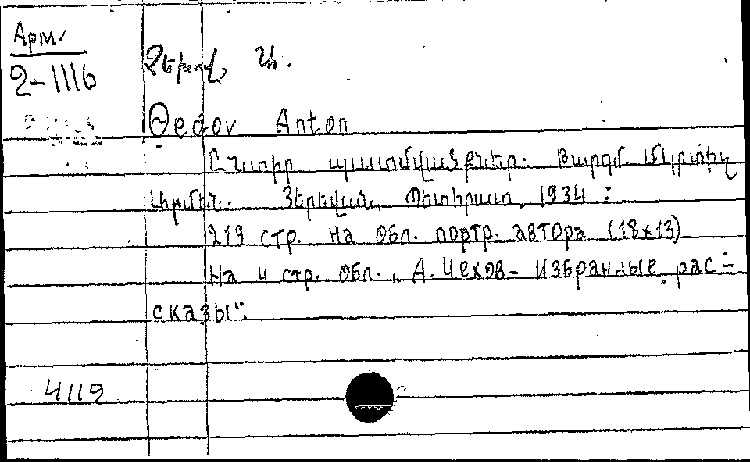 Арм.
2-1116
Չեխով, Ա.
Չեխով Anton
Ընտիր պատմվածքներ. Թարգմ. Մկրտիչ
Արմեն. Յերեվան, Պետհրատ, 1934 :
219 стр. на обл. портр. автора (18х13)
На 4 стр. обл. „А. Чехов- Избранные рас-
сказы":
4119